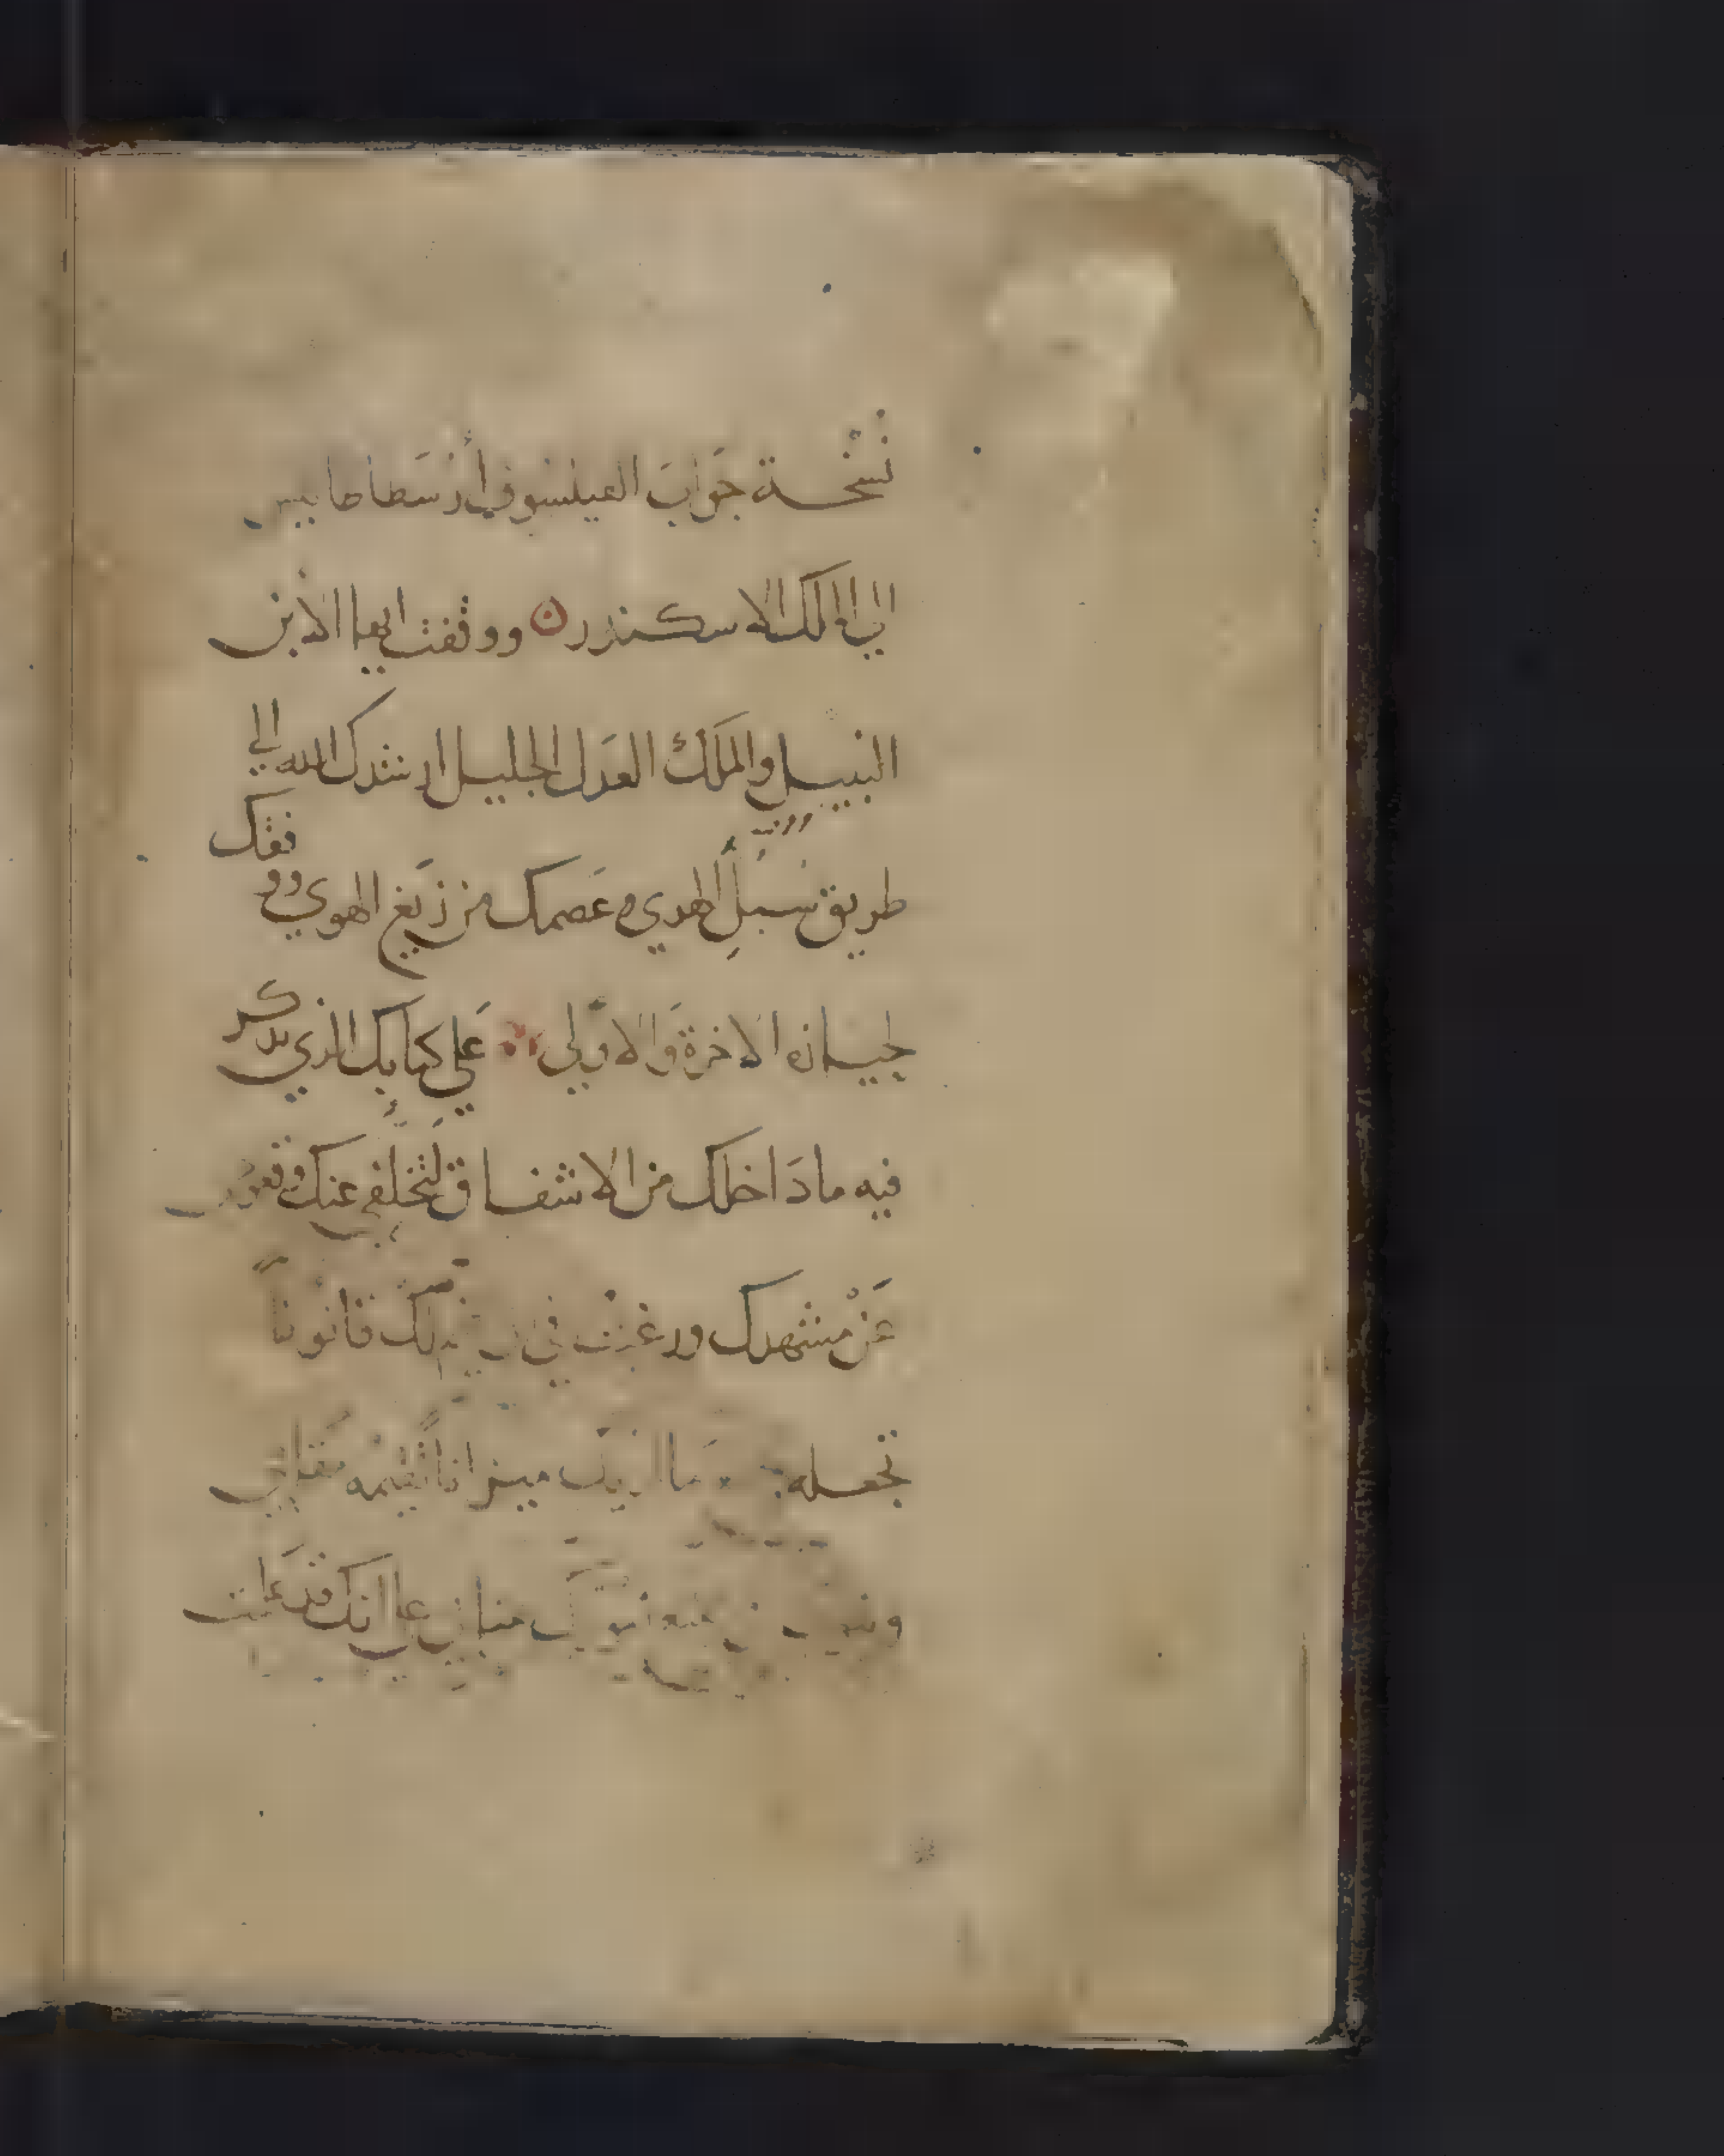 نُسْخة جَوَابَ الفيلسوف أرسَطاطاليس
الي الملك الاسكندر ووقفت ايها الابن
النبيل والملَك العَدل الجليل ارشدك الله الي
طريق سُبُل الهدي وعَصمك من زَيغ الهوي ووفقك
لحيازه الاخرة وَالاولي عَلي كتابك الذي تذكر
فيه ما دَاخلك من الاشفاق لتخلفي عنك وقعودي
عَنْ مشهدك ورغبت في ذلك قانوناً
تجعله ميزاناً تقيمه مقامي
وتنوب منابي علي انك قد عَلمت